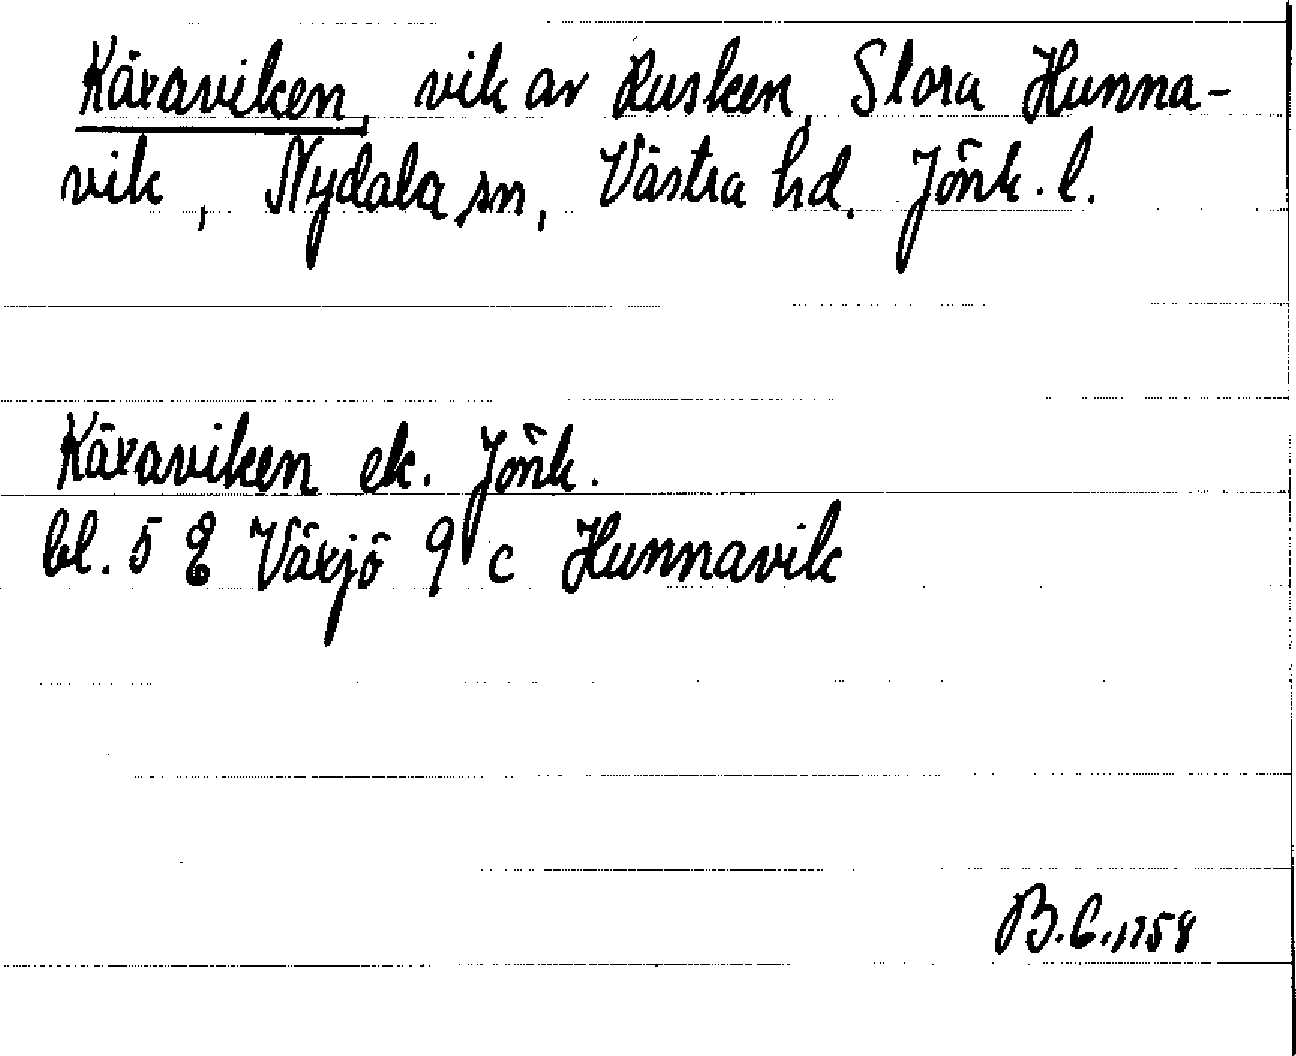 Käxaviken, vik av Rusken, Stora Hunna-
vik, Nydala sn, Västra hd, Jönk. l.
Käxaviken ek. Jönk.
bl. 5 E Växjö 9 c Hunnavik
B.C. 1958